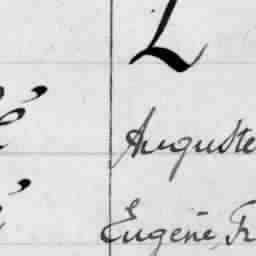 L
Auguste
Eugène, Fr